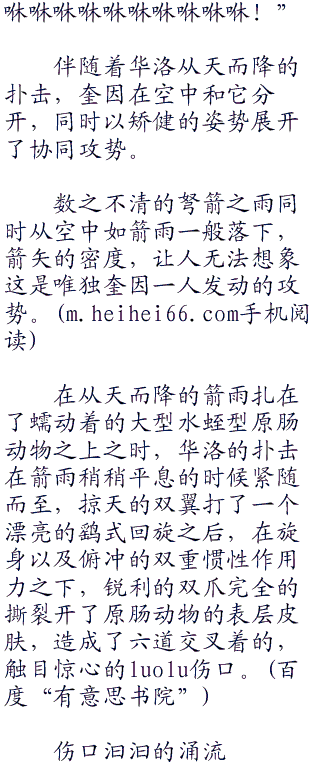 咻咻咻咻咻咻咻咻咻咻！”
伴随着华洛从天而降的
扑击，奎因在空中和它分
开，同时以矫健的姿势展开
了协同攻势。
数之不清的弩箭之雨同
时从空中如箭雨一般落下，
箭矢的密度，让人无法想象
这是唯独奎因一人发动的攻
势。(m.heihei66.com手机阅
读)
在从天而降的箭雨扎在
了蠕动着的大型水蛭型原肠
动物之上之时，华洛的扑击
在箭雨稍稍平息的时候紧随
而至，掠天的双翼打了一个
漂亮的鹞式回旋之后，在旋
身以及俯冲的双重惯性作用
力之下，锐利的双爪完全的
撕裂开了原肠动物的表层皮
肤，造成了六道交叉着的，
触目惊心的luolu伤口。(百
度“有意思书院”)
伤口汩汩的涌流